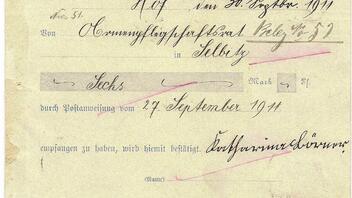 Hof, den 30. Septbr. 1911
No. 51.
Von Armenpflegschaftsrat Beleg No 52
in Selbitz
Sechs Mark — Pf.
durch Postanweisung vom 27 September 1911
empfangen zu haben, wird hiemit bestätigt. Katharina Börner.
(Name)